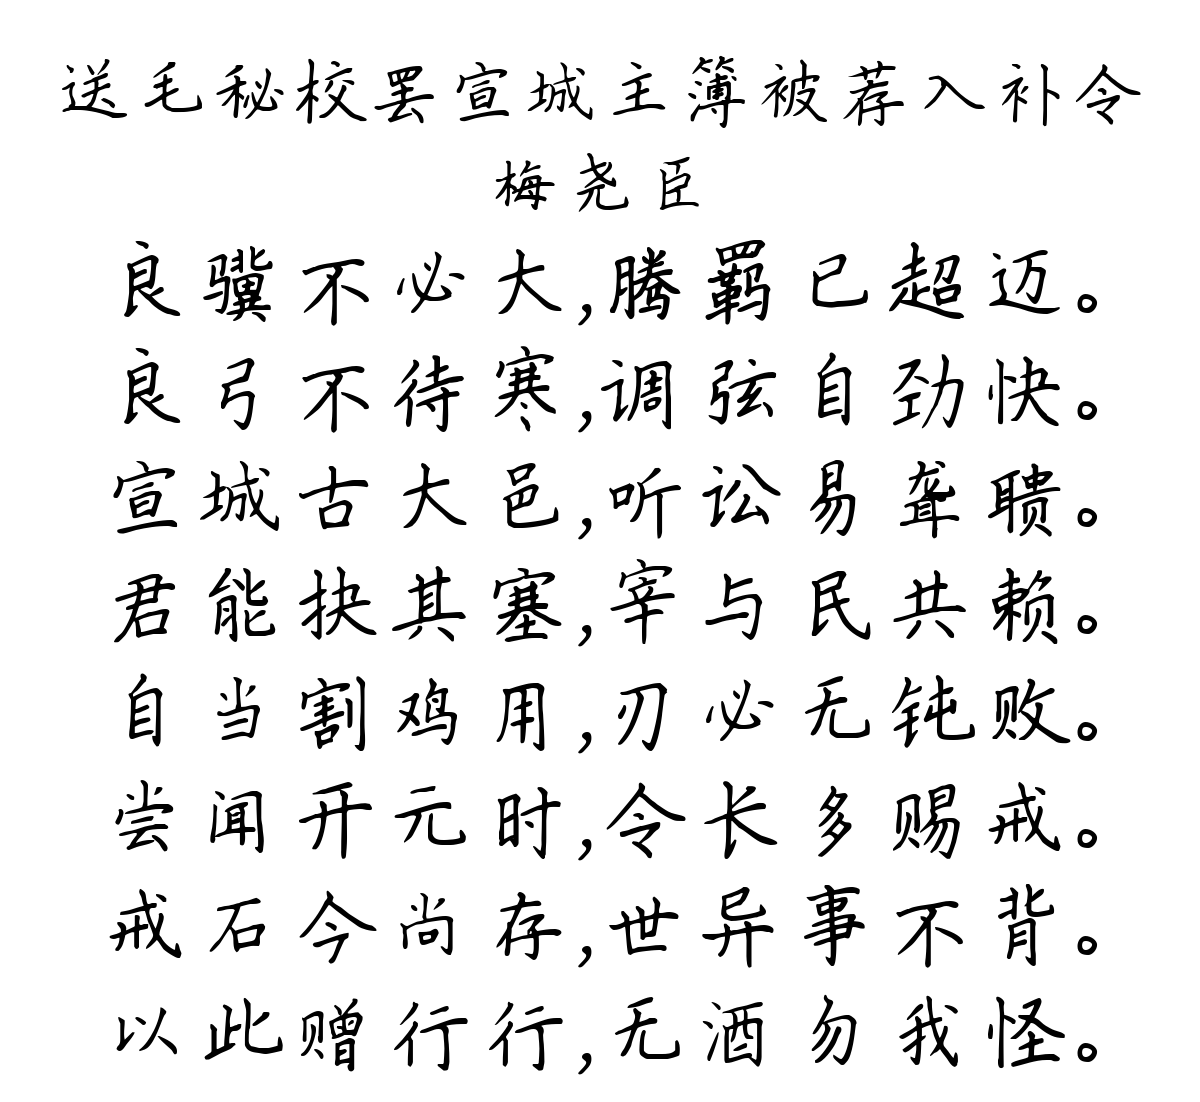 送毛秘校罢宣城主簿被荐入补令
梅尧臣
良骥不必大,腾羁已超迈。
良弓不待寒,调弦自劲快。
宣城古大邑,听讼易聋聩。
君能抉其塞,宰与民共赖。
自当割鸡用,刃必无钝败。
尝闻开元时,令长多赐戒。
戒石今尚存,世异事不背。
以此赠行行,无酒勿我怪。